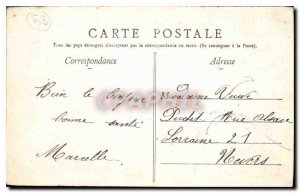 CARTE POSTALE
Tous les pays étrangers n'acceptent pas la correspondance au recto. (Se renseigner à la Poste).
Correspondance
Adresse
Bien le
bonne santé
Marcelle
Madame Veuve
Rue Alsace
Lorraine 21
Nevers